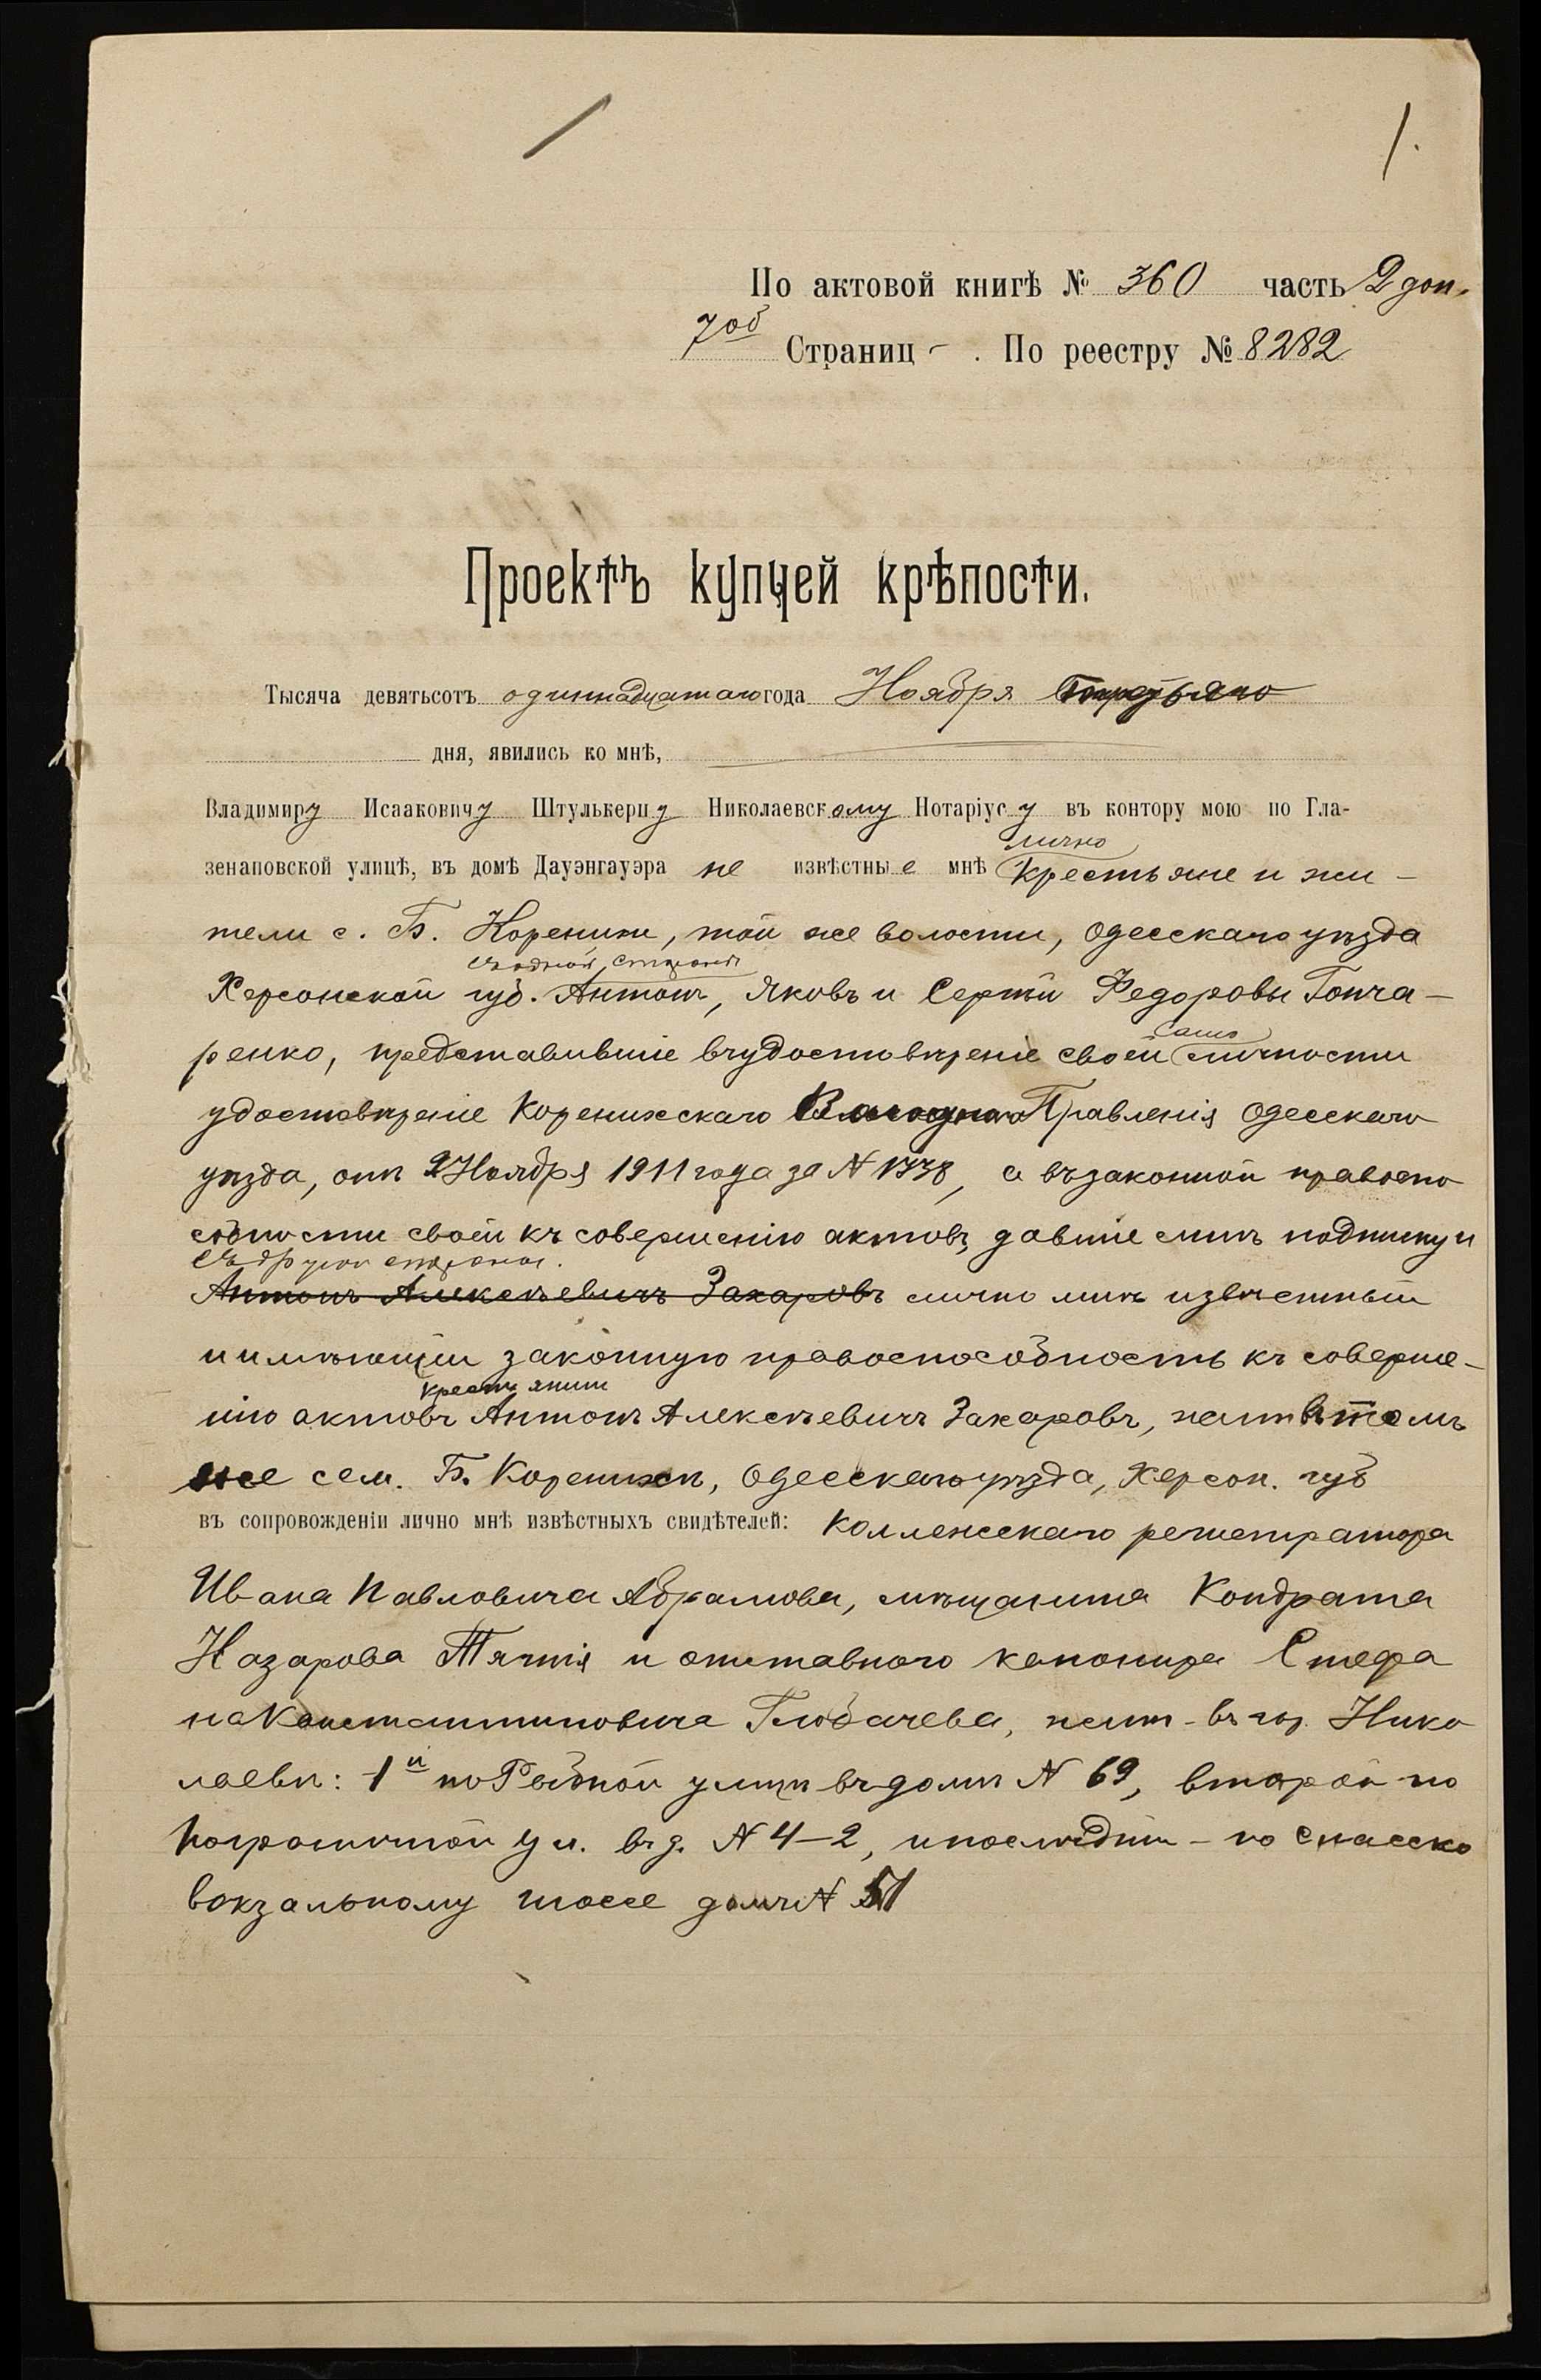 1.
По актовой книгѣ № 360 часть 2 доп.
7об Страниц . По реестру № 8282
Проектъ купчей крѣпости.
Тысяча девятьсотъ одиннадцатаго года Ноября третьяго
дня, явились ко мнѣ,
Владимиру Исааковичу Штулькерцу Николаевскому Нотаріусу въ контору мою по Гла-
лично
зенаповской улицѣ, въ домѣ Дауэнгауэра не извѣстные мнѣ крестьяне и жи-
тели с. Б. Корених, той же волости, Одесскаго уѣзда
съ одной стороны
Херсонской губ. Антонъ, Яковъ и Сергѣй Федоровы Гонча-
само
ренко, представившіе въ удостовѣреніе своей личности
удостовѣреніе Коренихскаго Волостного Правленія Одесскаго
уѣзда, отъ 2 Ноября 1911 года за N 1778, а въ законной правоспо
собности своей къ совершенію актовъ, давшіе мнѣ подписку и
съ другой стороны.
Антонъ Алексѣевичъ Захаровъ лично мнѣ извѣстный
и имѣющій законную правоспособность къ соверше-
крестьянинъ
нію актовъ Антонъ Алексѣевичъ Захаровъ, жит въ томъ
же сел. Б. Коренихѣ, Одесскаго уѣзда, Херсон. губ
въ сопровожденіи лично мнѣ извѣстныхъ свидѣтелей: Коллежскаго регистратора
Ивана Павловича Абрамова, мѣщанина Кондрата
Назарова и отставного канонира Стефа
на Константиновича Глобачева, жит - въ гор. Нико
лаевѣ: 1й по Рыбной улицѣ въ домѣ N 69, второй по
Пограничной ул. въ д. N 4-2, и послѣдній - по Спасско
вокзальному шоссе домъ N 51